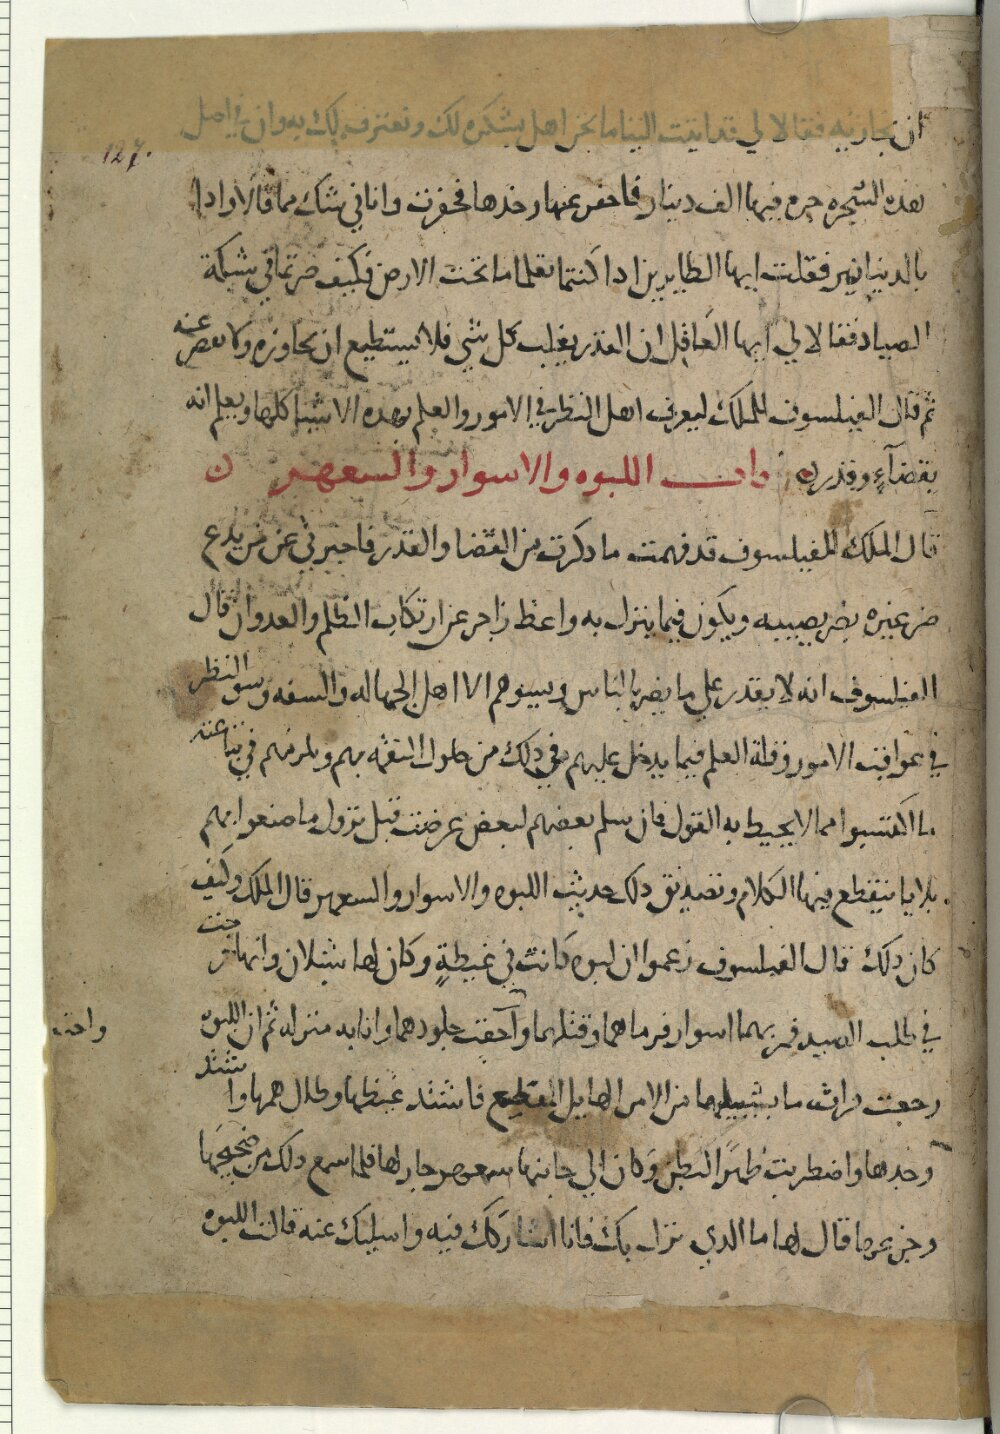 ان نجازيه فقالا لي قد اتيت الينا ما نحن اهل بشكره لك ونعترف لك به وان في اصل
127.
هذه الشجره جره فيها الف دينار فاحفر عنها وخذها فحفرت وانا في شك مما قالا واذا
بالدنيانير فقلت ايها الطايرين اذا كنتما تعلما ما تحت الارض فكيف صرتما في شبكة
الصياد فقالا لي ايها العاقل ان القدر يغلب كل شي فلا يستطيع ان يجاوزه ولا يعصر عنه
ثم قال الفيلسوف للملك ليعرف اهل النظر في الامور والعلم بهذه الاشيا كلها ويعلم انه
بقضآء وقدره باب اللبوه والاسوار والسعهر ن
قال الملك للفيلسوف قد فهمت ما ذكرت من القضا والقدر فاخبرني عن من يدع
ضر غيره بضر يصيبه ويكون فيما ينزل به واعظ زاجر عن ارتكاب الظلم والعدوان قال
الفيلسوف انه لا يقدر على ما يضر بالناس ويسوهم الا اهل الجهاله والسفه وسو النظر
في عواقب الامور وقلة العلم فيما يدخل عليهم في ذلك من حلول النقمه بهم ويلزمهم في تباعته
ما اكتسبوا مما لا يحيط به القول فان سلم بعضهم لبعض عرضت قبل نزول ما صنعوا بهم
بلايا ينقطع فيها الكلام وتصديق ذلك حديث اللبوه والاسوار والسعهر قال الملك وكيف
كان ذلك قال الفيلسوف زعموا ان لبوه كانت في غيطة وكان لها شبلان وانها خرجت
في طلب الصيد فمر بهما اسوار فرماهما وقتلهما وآحقب جلودهما واتا به منزله ثم ان اللبوه
واحقب
رجعت فرات ما بشبليهما من الامر الهايل الفظيع فاشتد غيظها وطال همها واشتد
وجدها واضطربت ظهرًا لبطن وكان الي جانبها سعهر جار لها فلما سمع ذلك من ضجيجها
وجزعها قال لها ما الذي نزل بك فانا اشاركك فيه واسليك عنه قالت اللبوه